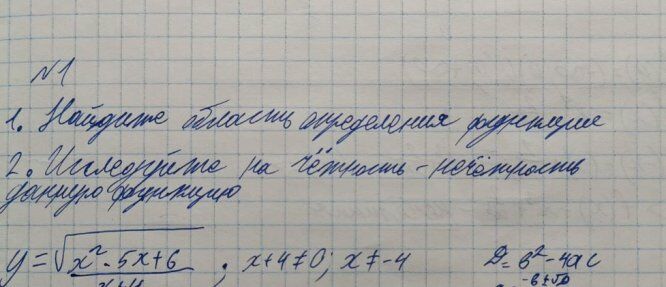 №1
1. Найдите область определения функции
2. Исследуйте на чётность - нечётность
данную функцию
y = √x² - 5x + 6 ; x+4≠0; x≠-4 D = b² - 4ac
x+4 -b±√D